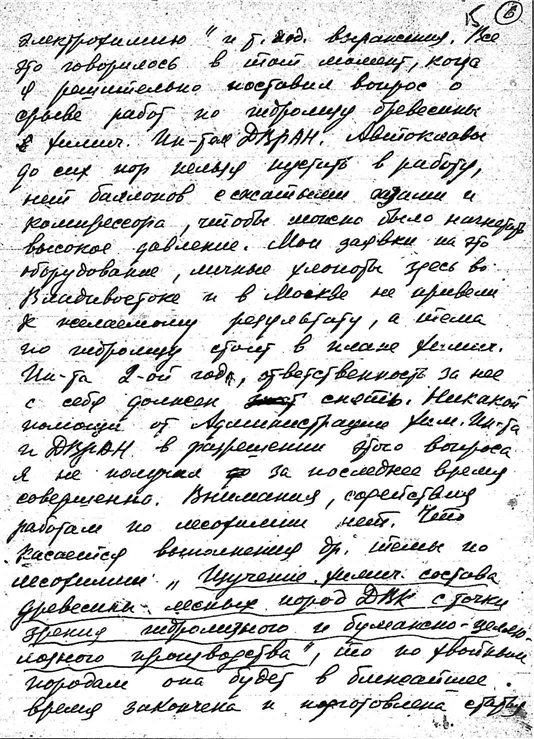 15/ 6
электрохимию" и т. под. выражения. Все
это говорилось в тот момент, когда
я решительно поставил вопрос о
срыве работ по гидролизу древесины
в Химич. Ин-те ДВРАН. Автоклавы
до сих пор нельзя пустить в работу,
нет баллонов с сжатыми газами и
компрессора, чтобы можно было нагнетать
высокое давление. Мои заявки на это
оборудование, личные хлопоты здесь во
Владивостоке и в Москве не привели
к желаемому результату, а тема
по гидролизу стоит в плане Химич.
Ин-та 2-ой год, ответственность за нее
с себя должен снять. Никакой
помощи от Администрации Хим. Ин-та
и ДВРАН в разрешении этого вопроса
я не получил за последнее время
совершенно. Внимания, содействия
работам по лесохимии нет. Что
касается выполнения др. темы по
лесохимии „Изучение химич. состава
древесины лесных пород ДВК с точки
зрения гидролизного и бумажно-целлю-
лозного производства", то по хвойным
породам она будет в ближайшее
время закончена и подготовлена статья